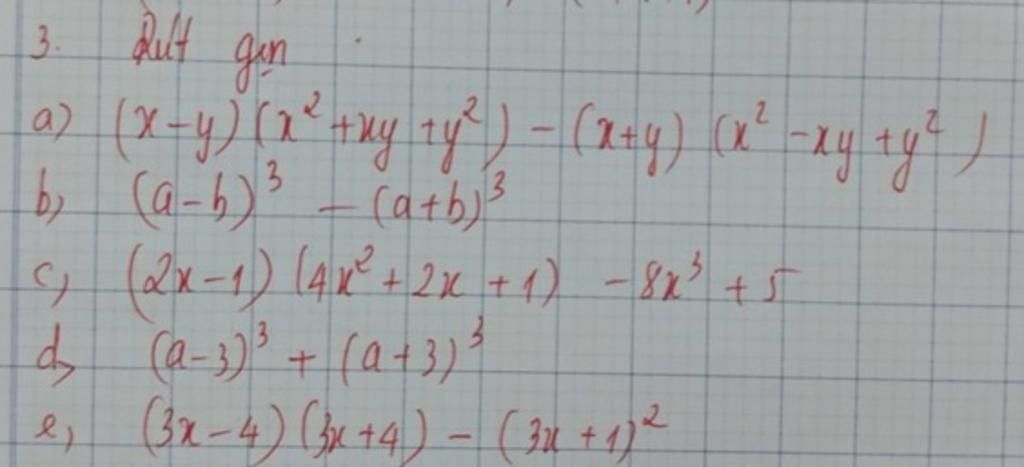 3. Rút gọn
a) (x-y)(x² +xy +y²) - (x+y) (x² -xy +y²)
b) (a-b)³ - (a+b)³
c) (2x-1) (4x² + 2x + 1) - 8x³ + 5
d) (a-3)³ + (a+3)³
e) (3x-4)(3x+4) - (3x +1)²